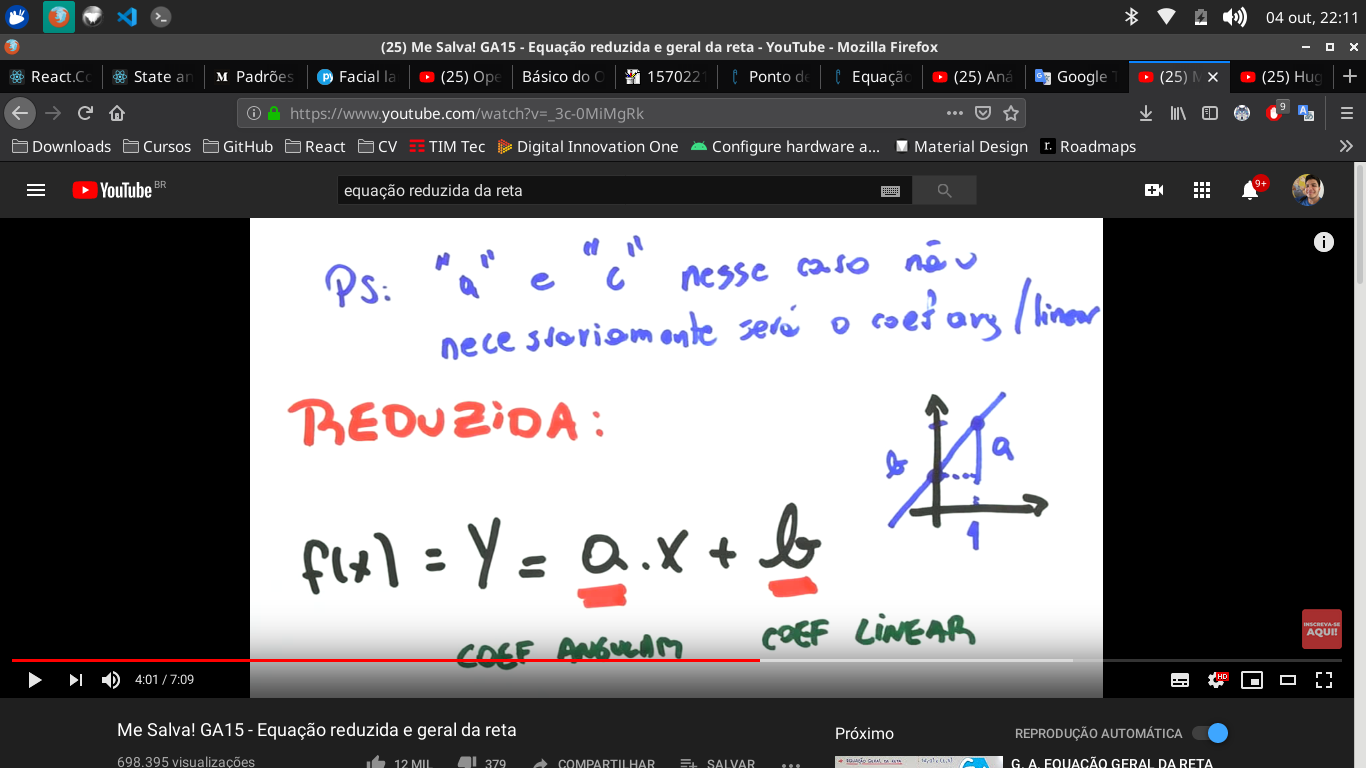 04 out, 22:11
(25) Me Salva! GA15 - Equação reduzida e geral da reta - YouTube - Mozilla Firefox
React.Co
State an
Padrões
Facial la
(25) Ope
Básico do C
1570221
Ponto de
Equação
(25) Aná
Google T
(25) M
(25) Hug
https://www.youtube.com/watch?v=_3c-0MiMgRk
9
Downloads
Cursos
GitHub
React
CV
TIM Tec
Digital Innovation One
Configure hardware a...
Material Design
r. Roadmaps
YouTube BR
equação reduzida da reta
9+
PS: "a" e "c" nesse caso não
necessariamente será o coef ang/linear
REDUZIDA:
b
a
1
f(x) = Y = a.x + b
COEF ANGULAR
COEF LINEAR
INSCREVA-SE
AQUI!
4:01 / 7:09
HD
Me Salva! GA15 - Equação reduzida e geral da reta
698.395 visualizações
12 MIL
379
COMPARTILHAR
SALVAR
Próximo
REPRODUÇÃO AUTOMÁTICA
G. A. EQUAÇÃO GERAL DA RETA